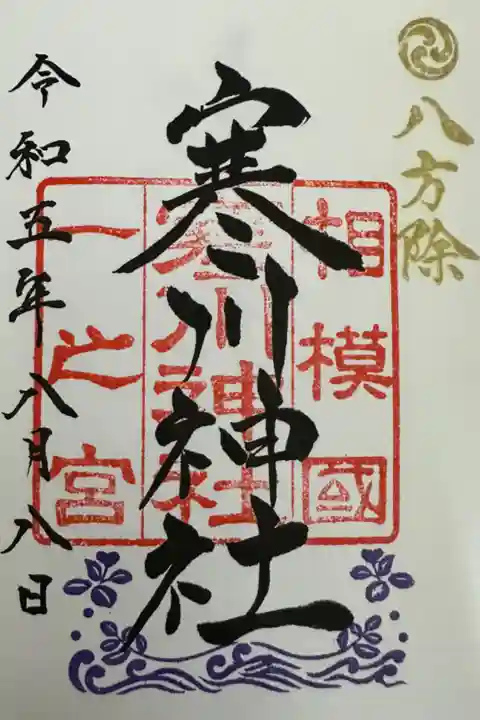 八方除
寒川神社
令和五年八月八日
相模國
寒川神社
一之宮